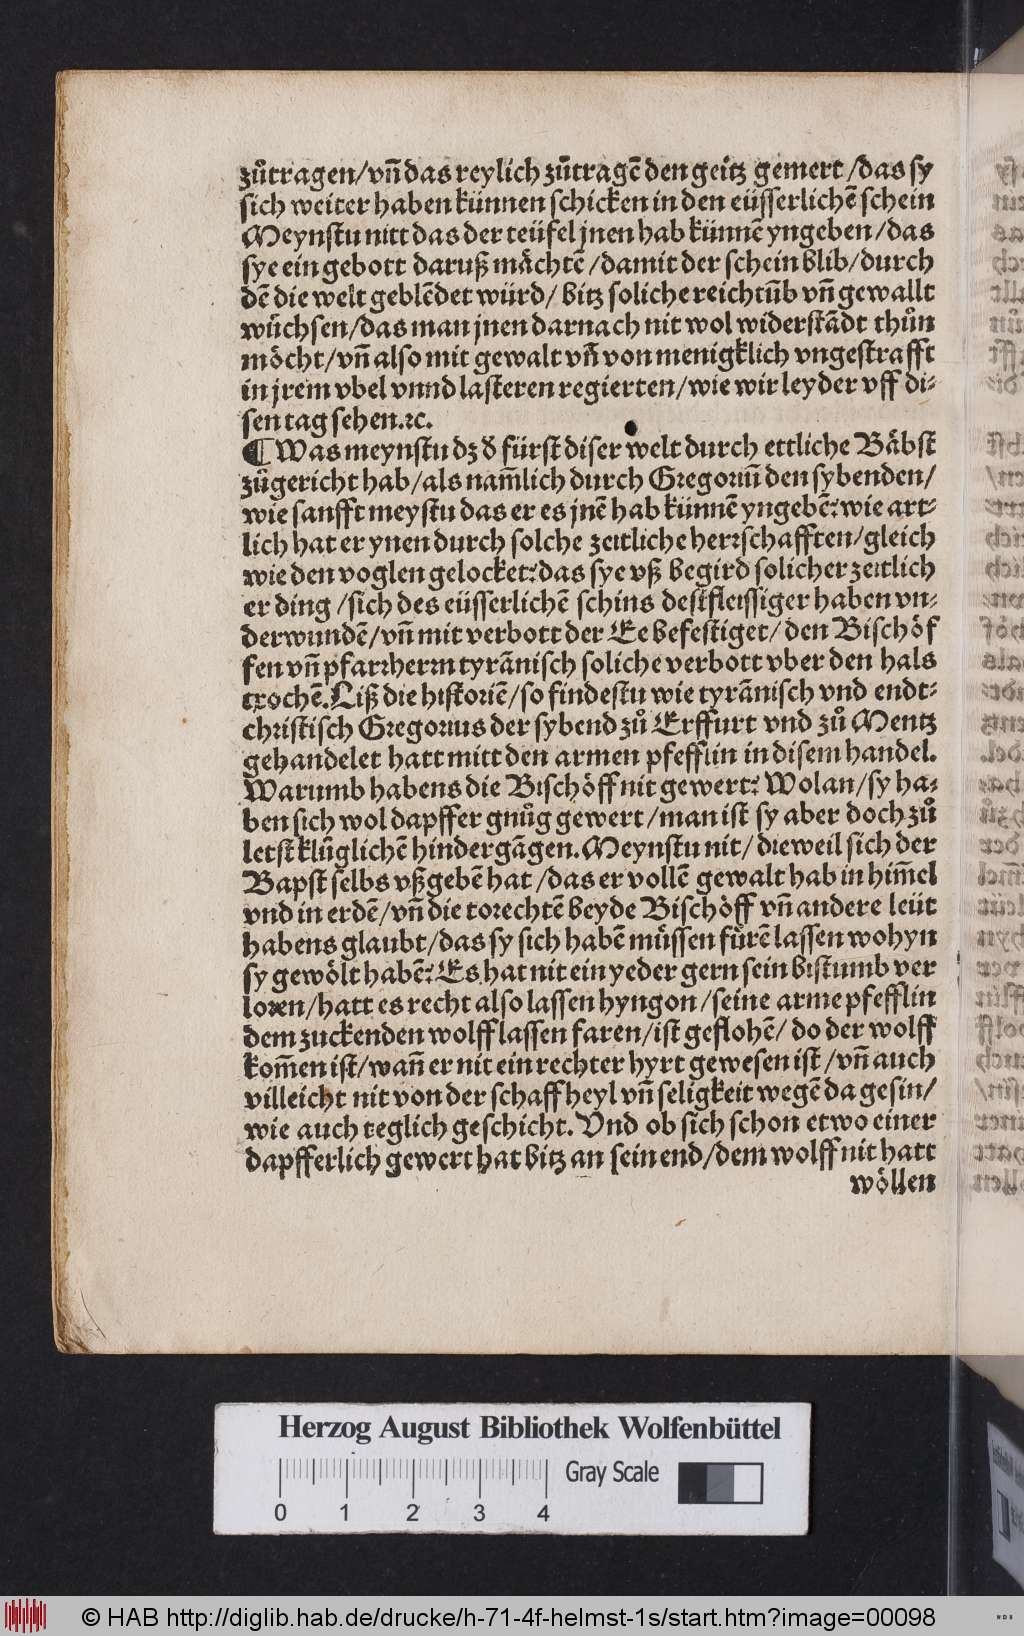 zůtragen/vñ das reylich zůtragē den geitz gemert/das sy
sich weiter haben künnen schicken in den eüsserlichē schein
Meynstu nitt das der teüfel jnen hab künnē yngeben/das
sye ein gebott daruß mächtē/damit der schein blib/durch
dē die welt geblēdet würd/ bitz soliche reichtūb vñ gewallt
wüchsen/das man jnen darnach nit wol widerstādt thůn
möcht/vñ also mit gewalt vñ von menigklich vngestrafft
in jrem vbel vnnd lasteren regierten/wie wir leyder vff di⸗
sen tag sehen.ꝛc.
¶ Was meynstu dz ď fürst diser welt durch ettliche Bäbst
zůgericht hab/als nam̄lich durch Gregoriū den sybenden/
wie sanfft meystu das er es jnē hab künnē yngebē: wie art⸗
lich hat er ynen durch solche zeitliche herꝛschafften/gleich
wie den voglen gelocket: das sye vß begird solicher zeitlich
er ding/sich des eüsserlichē schins dest fleissiger haben vn⸗
derwundē/vñ mit verbott der Ee befestiget/ den Bischöf
fen vñ pfarꝛherrn tyrānisch soliche verbott vber den hals
trochē. Liß die historiē/so findestu wie tyrānisch vnd endt⸗
christisch Gregorius der sybend zů Erffurt vnd zů Mentz
gehandelet hatt mitt den armen pfefflin in disem handel.
Warumb habens die Bischöff nit gewert: Wolan/sy ha⸗
ben sich wol dapffer gnůg gewert/man ist sy aber doch zů
letst klůglichē hindergāgen. Meynstu nit/ dieweil sich der
Bapst selbs vßgebē hat/das er vollē gewalt hab in him̄el
vnd in erdē/vñ die torechtē beyde Bischöff vñ andere leüt
habens glaubt/das sy sich habē müssen fürē lassen wohyn
sy gewölt habē: Es hat nit ein yeder gern sein bistumb ver
loren/hatt es recht also lassen hyngon/seine arme pfefflin
dem zuckenden wolff lassen faren/ist geflohē/ do der wolff
kom̄en ist/wañ er nit ein rechter hyrt gewesen ist/vñ auch
villeicht nit von der schaff heyl vñ seligkeit wegē da gesin/
wie auch teglich geschicht. Vnd ob sich schon etwo einer
dapfferlich gewert hat bitz an sein end/dem wolff nit hatt
wöllen
Herzog August Bibliothek Wolfenbüttel
Gray Scale
0 1 2 3 4
© HAB http://diglib.hab.de/drucke/h-71-4f-helmst-1s/start.htm?image=00098